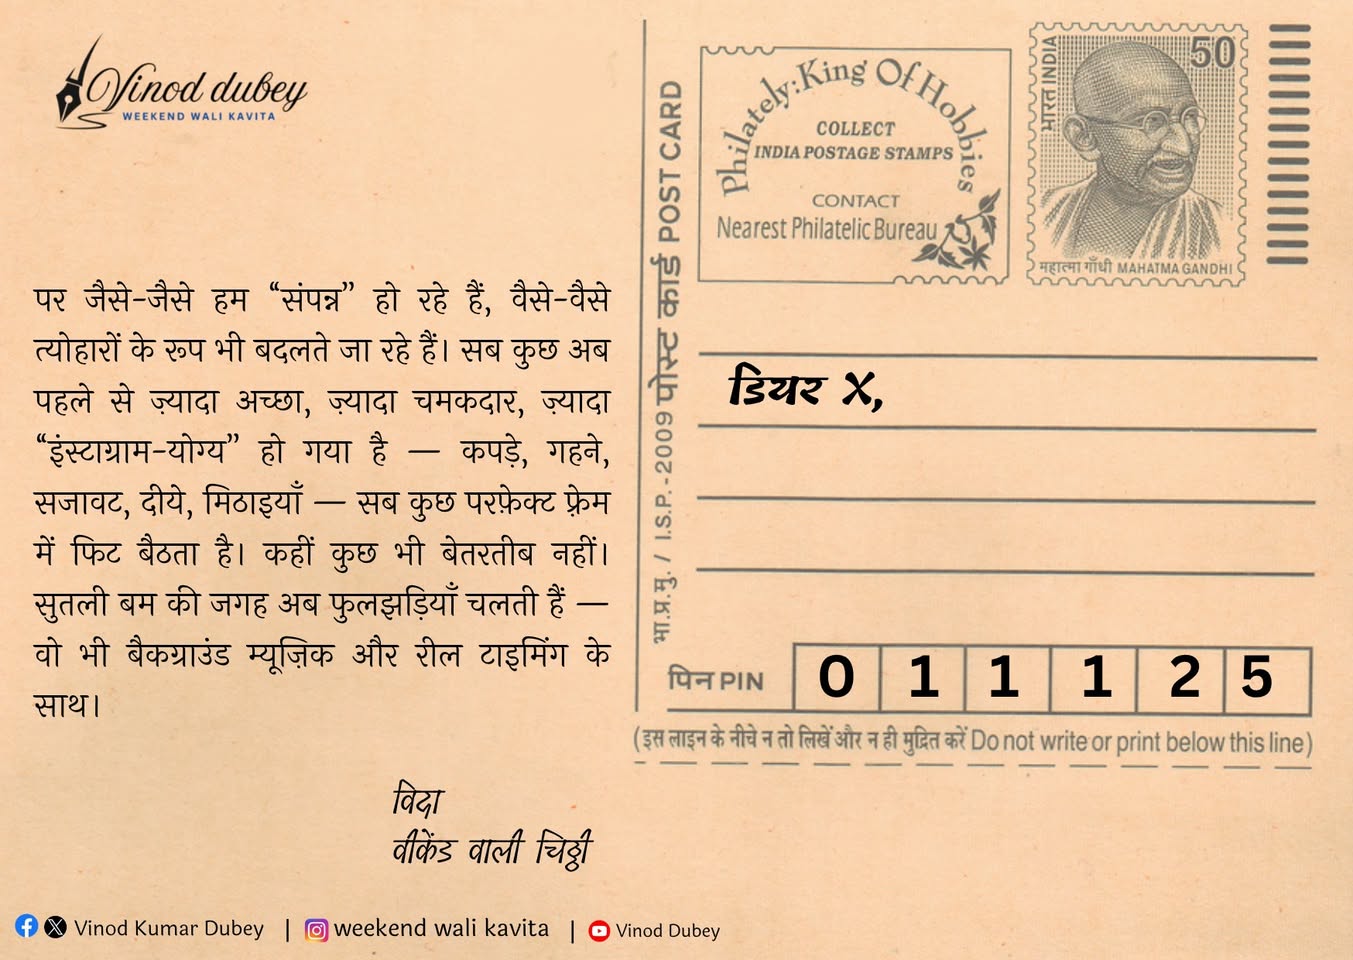 Vinod dubey
WEEKEND WALI KAVITA
पर जैसे-जैसे हम “संपन्न” हो रहे हैं, वैसे-वैसे
त्योहारों के रूप भी बदलते जा रहे हैं। सब कुछ अब
पहले से ज़्यादा अच्छा, ज़्यादा चमकदार, ज़्यादा
“इंस्टाग्राम-योग्य” हो गया है — कपड़े, गहने,
सजावट, दीये, मिठाइयाँ — सब कुछ परफ़ेक्ट फ़्रेम
में फिट बैठता है। कहीं कुछ भी बेतरतीब नहीं।
सुतली बम की जगह अब फुलझड़ियाँ चलती हैं —
वो भी बैकग्राउंड म्यूज़िक और रील टाइमिंग के
साथ।
विदा
वीकेंड वाली चिठ्ठी
भा.प्र.मु. / I.S.P.-2009 पोस्ट कार्ड POST CARD
Philately: King Of Hobbies
COLLECT
INDIA POSTAGE STAMPS
CONTACT
Nearest Philatelic Bureau
भारत INDIA
50
महात्मा गाँधी MAHATMA GANDHI
डियर X,
पिन PIN 0 1 1 1 2 5
(इस लाइन के नीचे न तो लिखें और न ही मुद्रित करें Do not write or print below this line)
Vinod Kumar Dubey | weekend wali kavita | Vinod Dubey